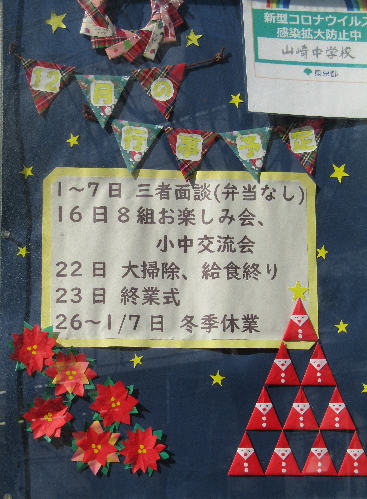 新型コロナウイルス
感染拡大防止中
山崎中学校
東京都
12月の
行事予定
1～7日 三者面談(弁当なし)
16日8組お楽しみ会、
小中交流会
22日 大掃除、給食終り
23日 終業式
26～1/7日 冬季休業